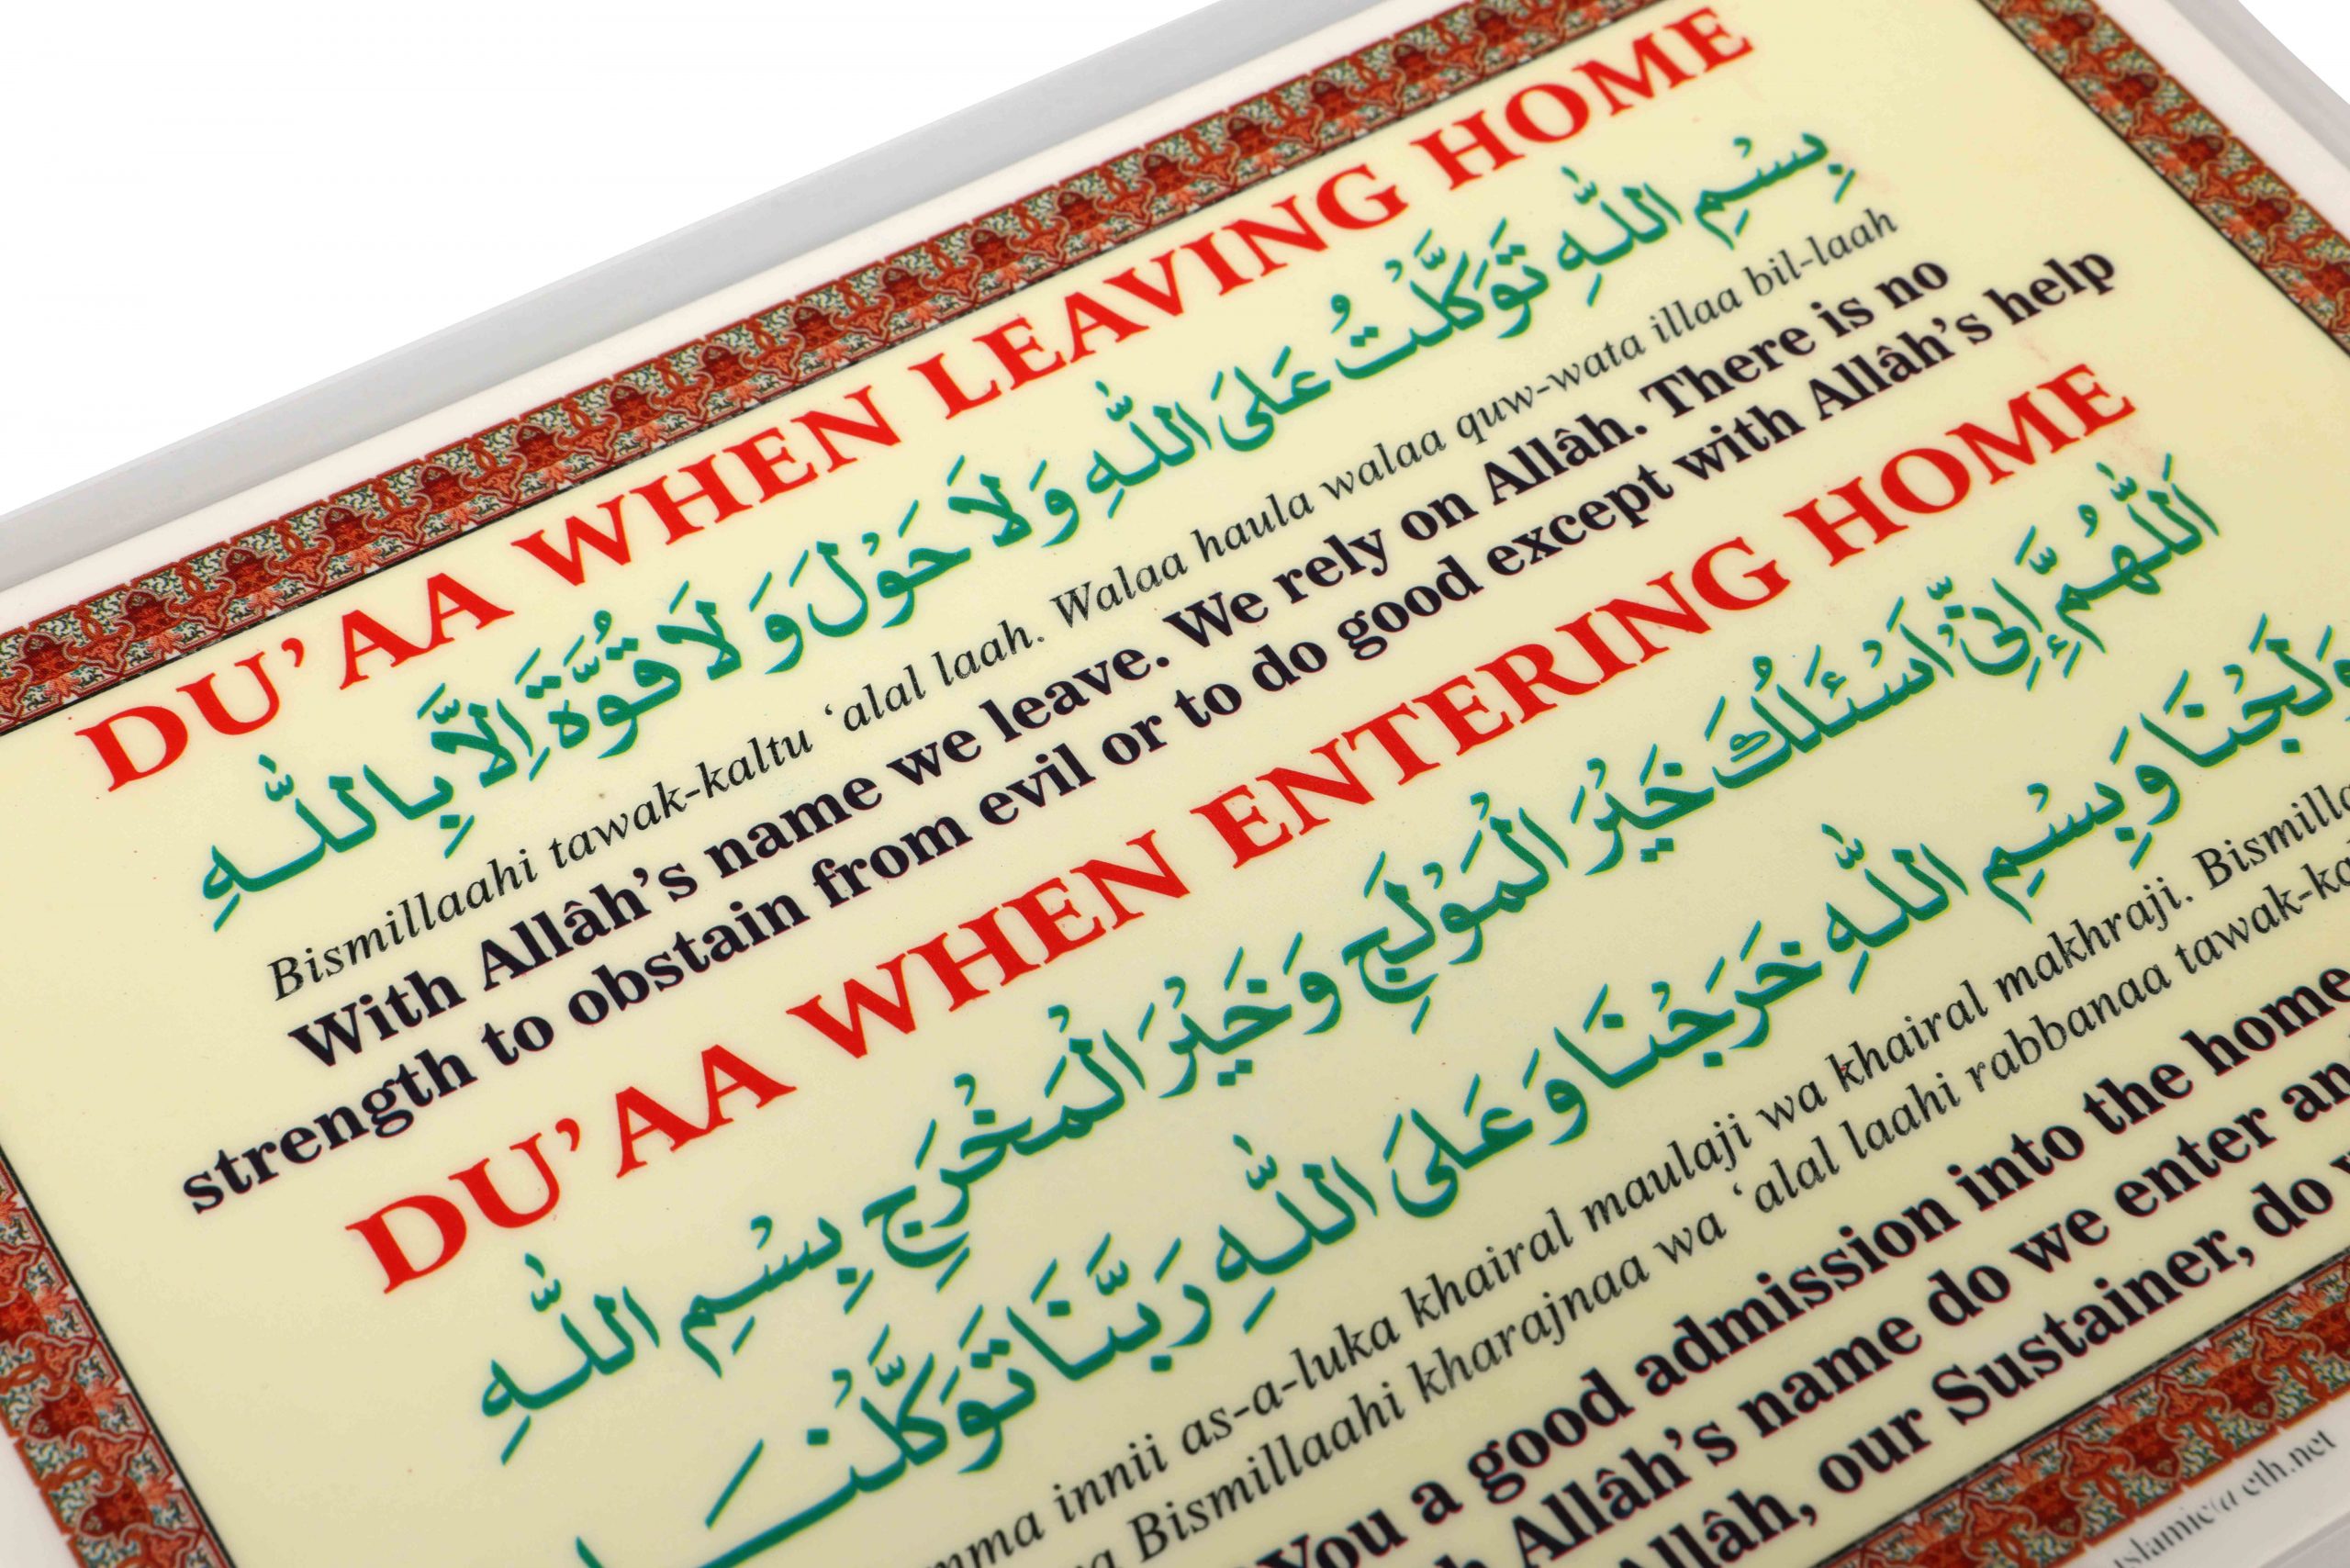 DU’AA WHEN LEAVING HOME
بِسْمِ اللّٰهِ تَوَكَّلْتُ عَلَى اللّٰهِ وَلَا حَوْلَ وَ لَا قُوَّةَ اِلَّا بِاللّٰهِ
Bismillaahi tawak-kaltu ‘alal laah. Walaa haula walaa quw-wata illaa bil-laah
With Allâh’s name we leave. We rely on Allâh. There is no
strength to obstain from evil or to do good except with Allâh’s help
DU’AA WHEN ENTERING HOME
اَللّٰهُمَّ اِنِّىْ اَسْئَلُكَ خَيْرَ الْمَوْلِجِ وَخَيْرَ الْمَخْرَجِ بِسْمِ اللّٰهِ
وَلَجْنَا وَ بِسْمِ اللّٰهِ خَرَجْنَا وَ عَلَى اللّٰهِ رَبَّنَا تَوَكَّلْنَا
innii as-a-luka khairal maulaji wa khairal makhraji.
Bismillaahi kharajnaa wa ‘alal laahi rabbanaa
You a good admission into the home
Allâh’s name do we enter
our Sustainer, do